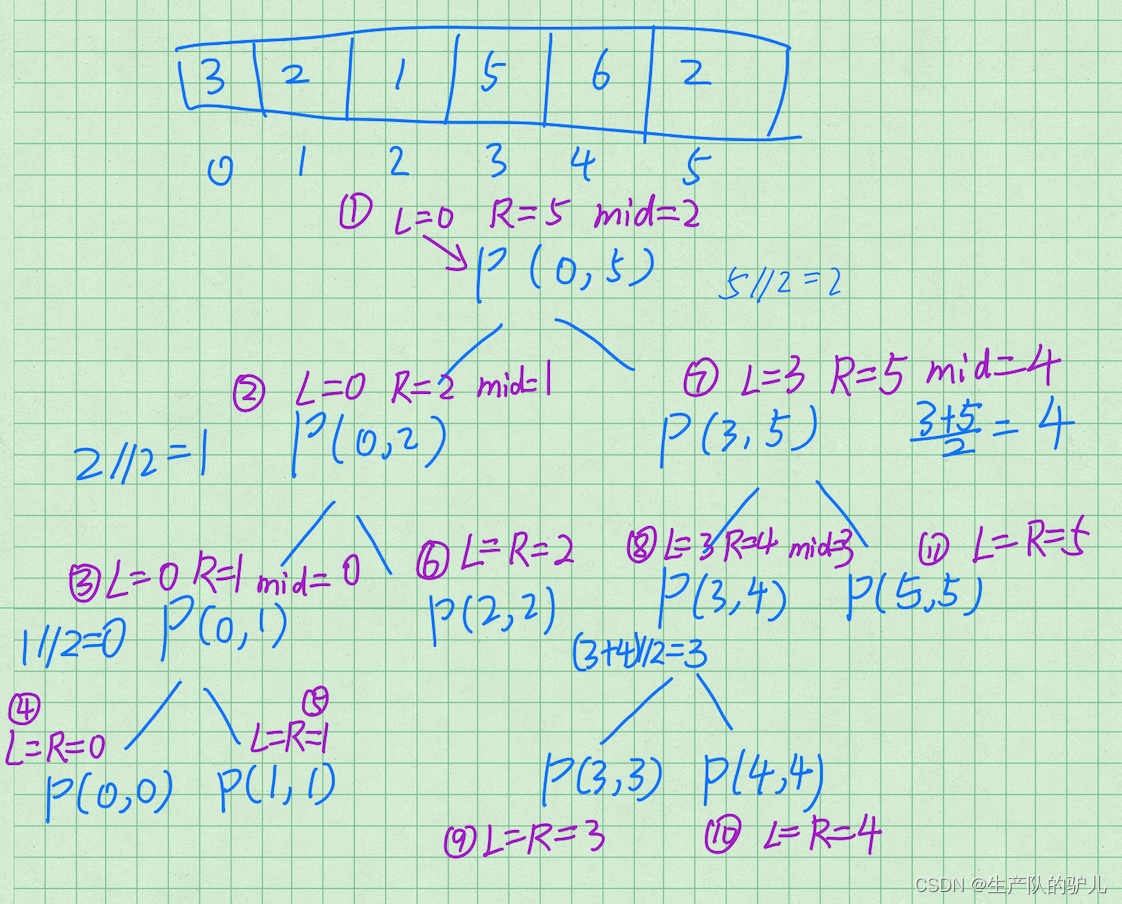 3 2 1 5 6 2
0 1 2 3 4 5
① L=0 R=5 mid=2
P(0,5)
5//2=2
② L=0 R=2 mid=1
⑦ L=3 R=5 mid=4
2//2=1
P(0,2)
P(3,5)
3+5
2
= 4
③ L=0 R=1 mid=0
⑥ L=R=2
⑧ L=3 R=4 mid=3
⑪ L=R=5
1//2=0
P(0,1)
P(2,2)
P(3,4)
P(5,5)
(3+4)//2=3
④
L=R=0
⑤
L=R=1
P(0,0)
P(1,1)
P(3,3)
P(4,4)
⑨ L=R=3
⑩ L=R=4
CSDN @生产队的驴儿